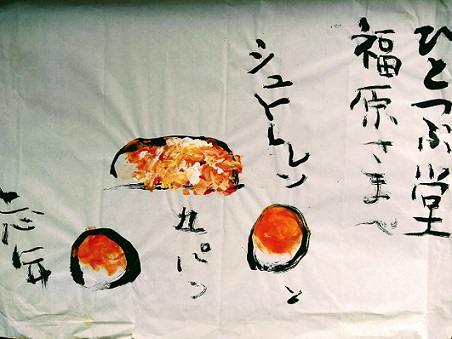 ひとつぶ堂
福原さまへ
シュトレン
丸パン